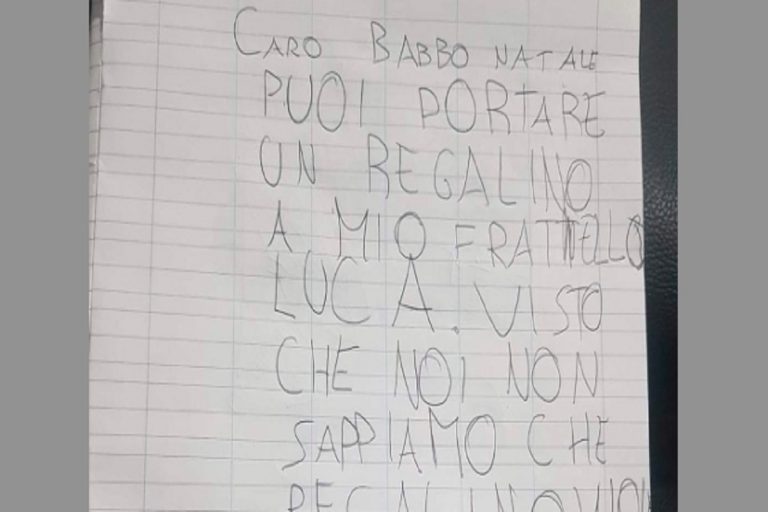 CARO BABBO NATALE
PUOI PORTARE
UN REGALINO
A MIO FRATTELLO
LUCA. VISTO
CHE NOI NON
SAPPIAMO CHE
REGALINO VUOI